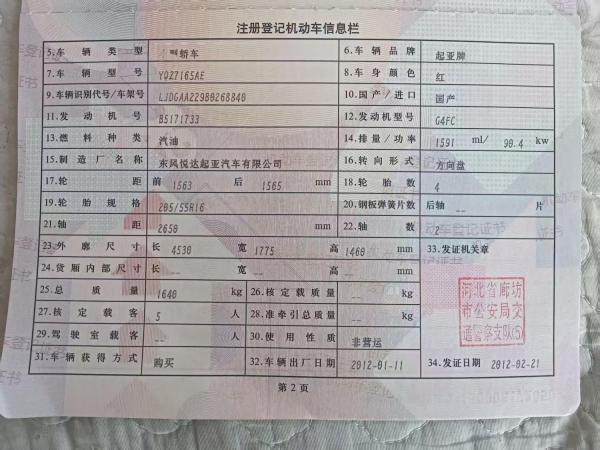 注册登记机动车信息栏
5.车辆类型 轿车 6.车辆品牌 起亚牌
7.车辆型号 YQZ7165AE 8.车身颜色 红
9.车辆识别代号/车架号 LJDGAA229B0268840 10.国产/进口 国产
11.发动机号 B5171733 12.发动机型号 G4FC
13.燃料种类 汽油 14.排量/功率 1591 ml/ 90.4 kw
15.制造厂名称 东风悦达起亚汽车有限公司 16.转向形式 方向盘
17.轮距 前 1563 后 1565 mm 18.轮胎数 4
19.轮胎规格 205/55R16 20.钢板弹簧片数 后轴 -- 片
21.轴距 2650 mm 22.轴数 2
23.外廓尺寸 长 4530 宽 1775 高 1460 mm 33.发证机关章
24.货厢内部尺寸 长 -- 宽 -- 高 -- mm
25.总质量 1640 kg 26.核定载质量 -- kg
27.核定载客 5 人 28.准牵引总质量 -- kg
29.驾驶室载客 -- 人 30.使用性质 非营运
河北省廊坊
市公安局交
通警察支队(5)
31.车辆获得方式 购买 32.车辆出厂日期 2012-01-11 34.发证日期 2012-02-21
第2页